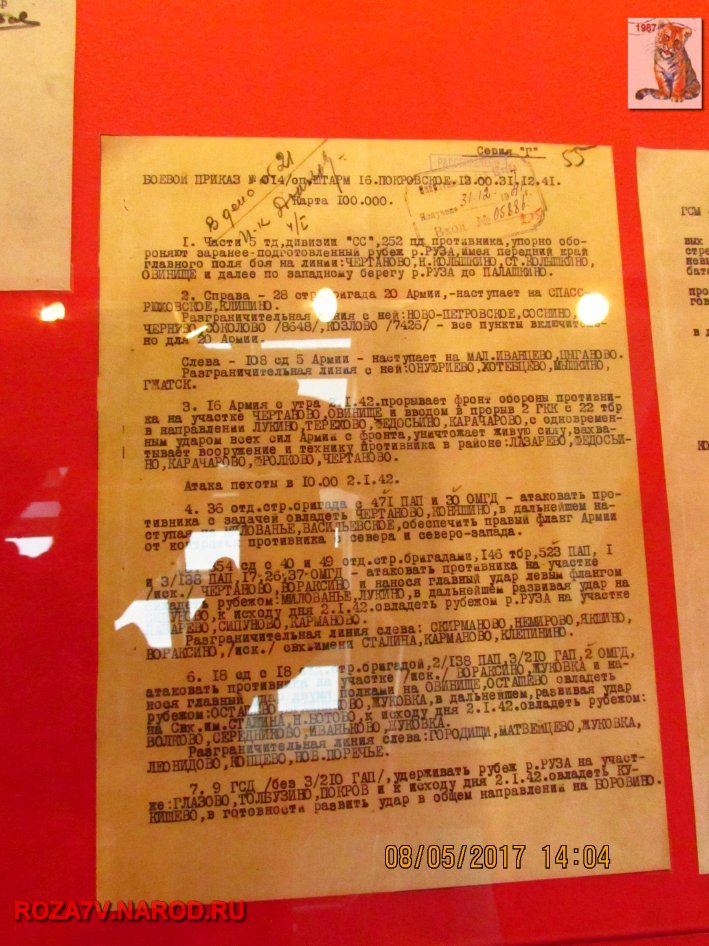 1987
Серия "Г"
55
В дело № 21
БОЕВОЙ ПРИКАЗ № 014/оп.ШТАРМ 16.ПОКРОВСКОЕ,13.00.31.12.41.
Карта 100.000.
31-12
Вход №05886
I. Части 5 тд,дивизии "СС",252 пд противника,упорно обо-
роняют заранее-подготовленный рубеж р.РУЗА,имея передний край
главного поля боя на линии:ЧЕРТАНОВО,Н.КОЛЫШКИНО,СТ.КОЛЫШКИНО,
ОВИНИЩЕ и далее по западному берегу р.РУЗА до ПАЛАШКИНО.
2. Справа - 28 стр.бригада 20 Армии,-наступает на СПАСС-
РЮХОВСКОЕ,КЛИШИНО.
Разграничительная линия с ней:НОВО-ПЕТРОВСКОЕ,СОСНИНО,
ЧЕРНУВО,СОКОЛОВО /8648/,КОЗЛОВО /7426/ - все пункты включитель-
но для 20 Армии.
Слева - 108 сд 5 Армии - наступает на МАЛ.ИВАНЦЕВО,ЦЫГАНОВО.
Разграничительная линия с ней:ОНУФРИЕВО,ХОТЕБЦЕВО,МЫШКИНО,
ГЖАТСК.
3. 16 Армия с утра 2.I.42.прорывает фронт обороны противни-
ка на участке ЧЕРТАНОВО,ОВИНИЩЕ и вводом в прорыв 2 ГКК с 22 тбр
в направлении ЛУКИНО,ТЕРЕХОВО,ФЕДОСЬИНО,КАРАЧАРОВО,с одновремен-
ным ударом всех сил Армии с фронта,уничтожает живую силу,захва-
тывает вооружение и технику противника в районе:ЛАЗАРЕВО,ФЕДОСЬИ-
НО,КАРАЧАРОВО,ФРОЛКОВО,ЧЕРТАНОВО.
Атака пехоты в 10.00 2.I.42.
4. 36 отд.стр.бригада с 471 ПАП и 30 ОМГД - атаковать про-
тивника с задачей овладеть ЧЕРТАНОВО,КОНЯШИНО,в дальнейшем на-
ступая на МИЛОВАНЬЕ,ВАСИЛЬЕВСКОЕ,обеспечить правый фланг Армии
от противника с севера и северо-запада.
354 сд с 40 и 49 отд.стр.бригадами,146 тбр,523 ПАП, I
и 3/138 ПАП,17,26,37 ОМГД - атаковать противника на участке
/иск./ ЧЕРТАНОВО,ВОРАКСИНО и нанося главный удар левым флангом
рубежом:МИЛОВАНЬЕ,ЛУКИНО,в дальнейшем развивая удар на
к исходу дня 2.I.42.овладеть рубежом р.РУЗА на участке
СИПУНОВО,КАРМАНОВО.
Разграничительная линия слева: СКИРМАНОВО,НЕМИРОВО,ЯКШИНО,
ВОРАКСИНО,/иск./ свх.имени СТАЛИНА,КАРМАНОВО,КЛЕПИНИНО.
6. 18 сд с 18 стр.бригадой,2/138 ПАП,3/210 ГАП,2 ОМГД,
атаковать участке /иск./ ВОРАКСИНО,ЖУКОВКА и на-
нося главный полками на ОВИНИЩЕ,ОСТАШЕВО овладеть
рубежом: ЖУКОВКА,в дальнейшем,развивая удар
на Свх.им.СТАЛИНА,Н.ВОТОВО,к исходу дня 2.I.42.овладеть рубежом:
ВОЛКОВО,СЕРЕДНИКОВО,ИВАНЬКОВО,ДУКОВКА.
Разграничительная линия слева:ГОРОДИЩИ,МАТВЕЙЦЕВО,ЖУКОВКА,
ЛЕОНИДОВО,КОПЦЕВО,НОВ.ПОРЕЧЬЕ.
7. 9 ГСД /без 3/210 ГАП/,удерживать рубеж р.РУЗА на участ-
ке:ГЛАЗОВО,ТОЛБУЗИНО,ПОКРОВ и к исходу дня 2.I.42.овладеть КУ-
КИШЕВО,в готовности развить удар в общем направлении на БОРОВИНО.
ГСМ
08/05/2017 14:04
ROZA7V.NAROD.RU